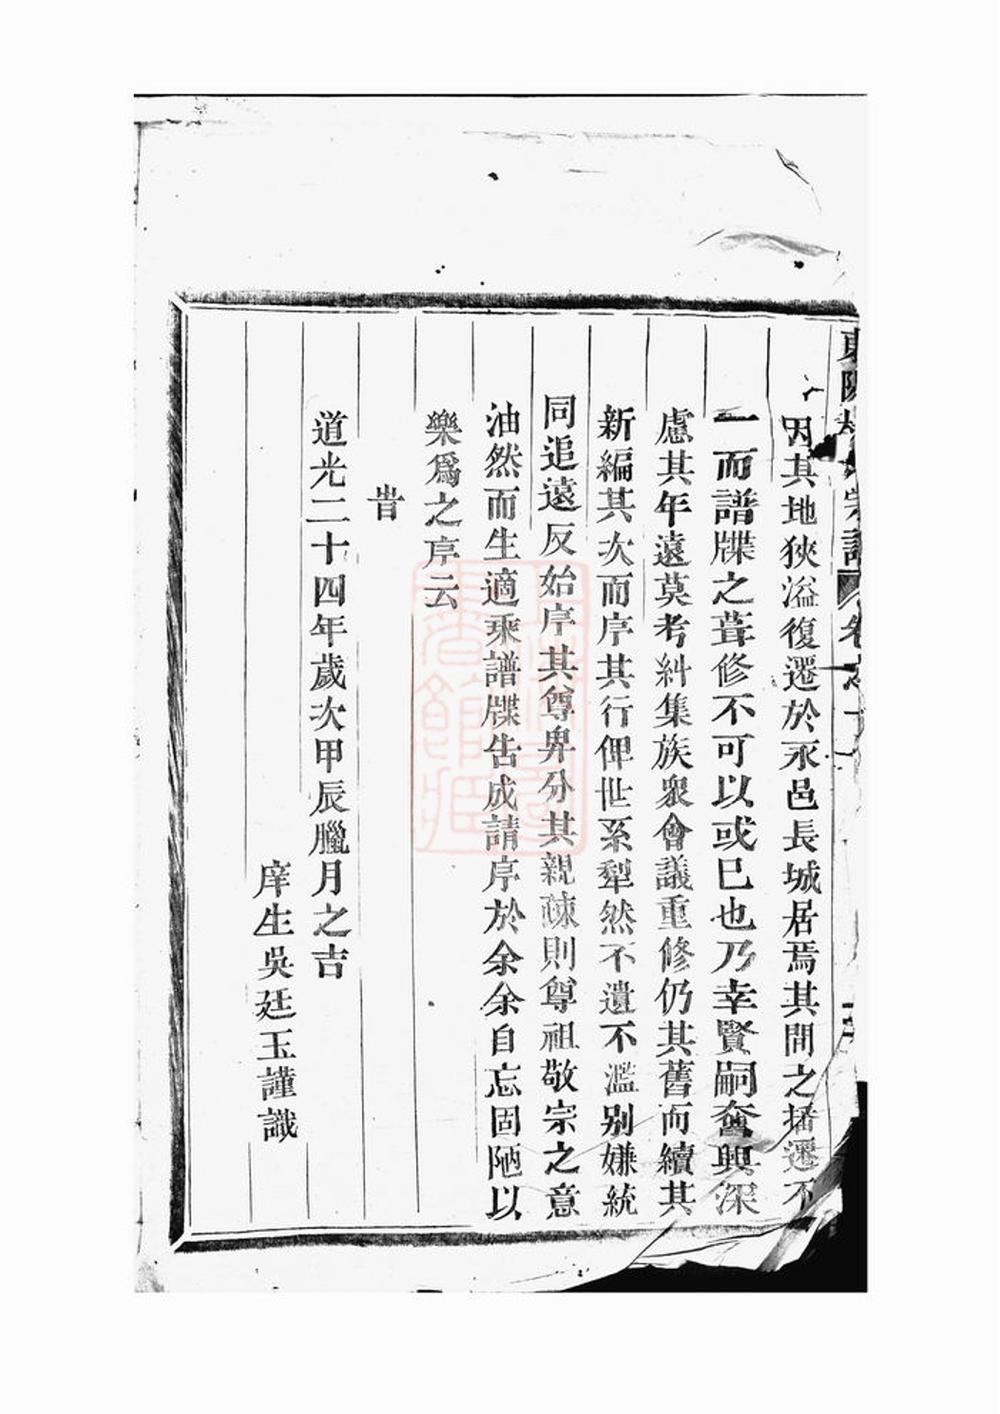 因其地狹溢復遷於永邑長城居焉其間之播遷不
一而譜牒之葺修不可以或已也乃幸賢嗣奮興深
慮其年遠莫考糾集族衆會議重修仍其舊而續其
新編其次而序其行俾世系犁然不遺不濫別嫌統
同追遠反始序其尊卑分其親疎則尊祖敬宗之意
油然而生適乘譜牒告成請序於余余自忘固陋以
樂爲之序云
旹
道光二十四年歲次甲辰臘月之吉
庠生吳廷玉謹識